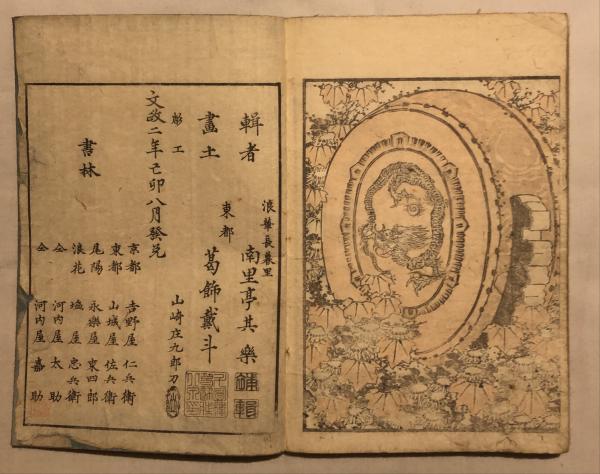 輯者 浪華長慕里 南里亭其樂 輔輯
畫士 東都 葛飾戴斗
彫工 山﨑庄九郎刀
文政二年己卯八月發兌
書林
京都 吉野屋 仁兵衛
東都 山城屋 佐兵衛
尾陽 永樂屋 東四郎
浪花 塩屋 忠兵衛
仝 河内屋 太助
仝 河内屋 嘉助